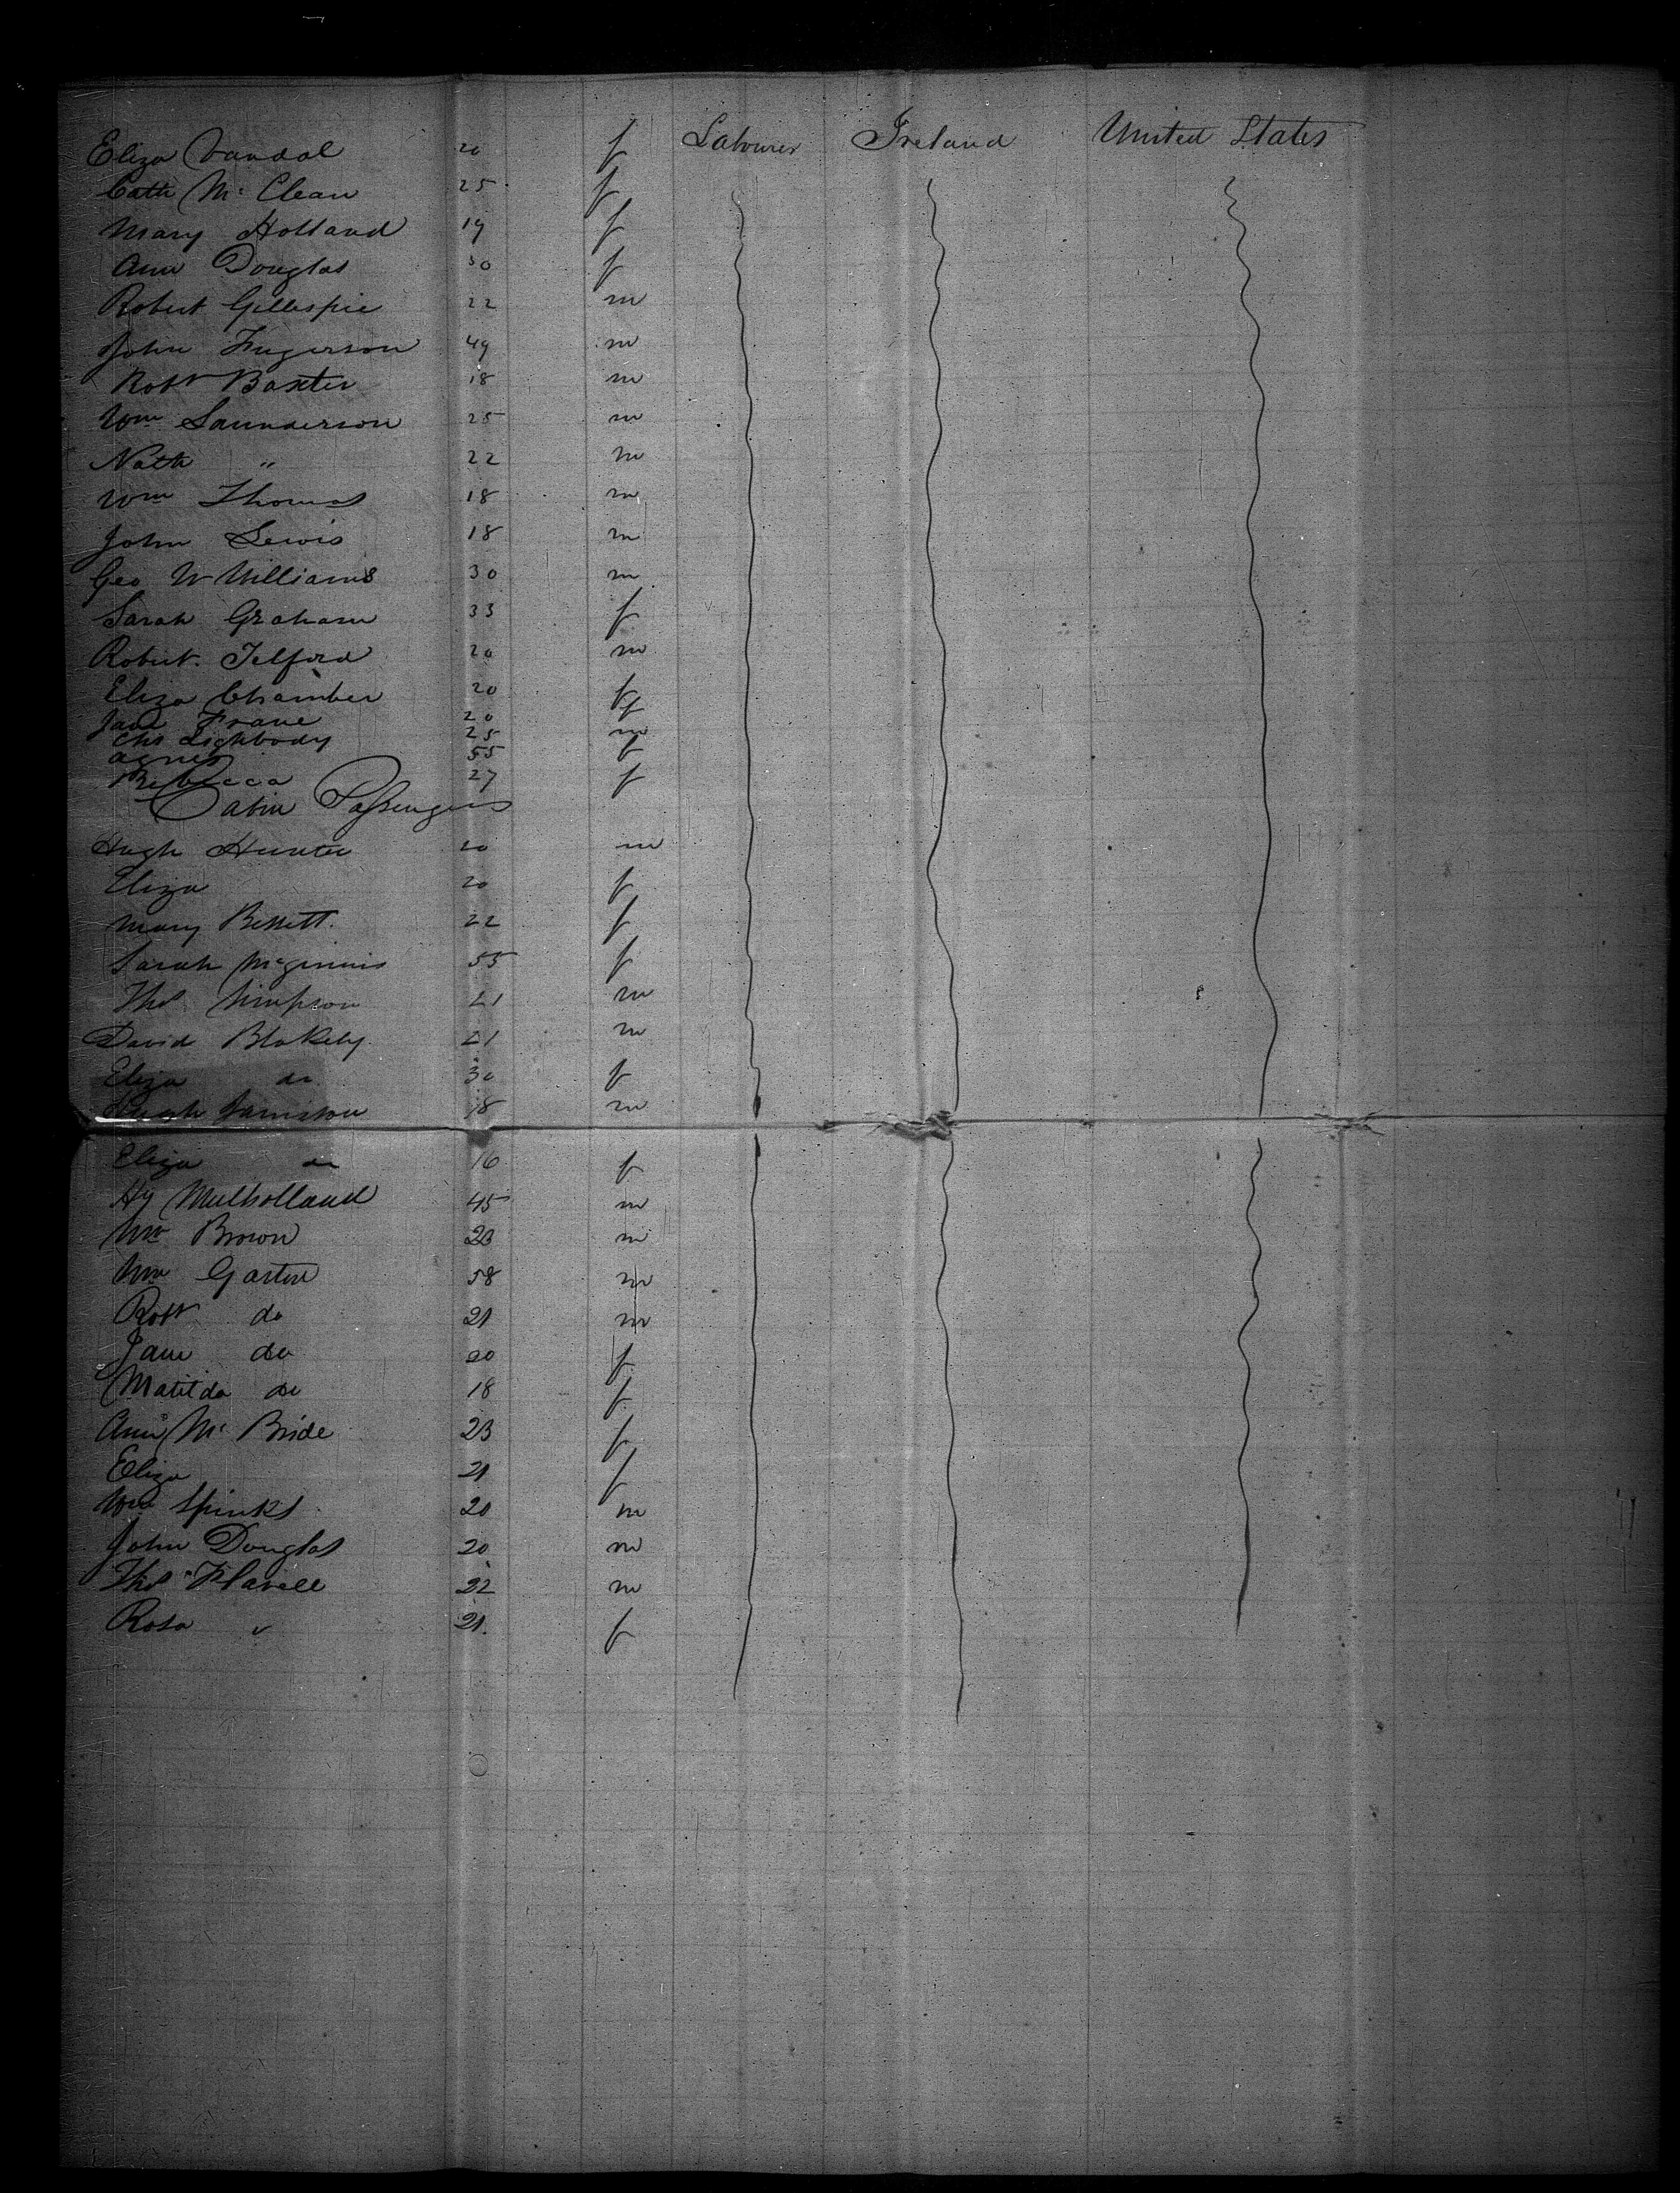 Eliza Vandal 20 f Labourer Ireland United States
Cath Mc Clean 25 f
Mary Holland 19 f
Ann Douglas 30 f
Robert Gillespie 22 m
John Fugerson 49 m
Robt Baxter 18 m
Wm Saunderson 25 m
Nath " 22 m
Wm Thomas 18 m
John Lewis 18 m
Geo W Williams 30 m
Sarah Graham 33 f
Robert Telford 20 m
Eliza Chamber 20 f
Jane Frane 20 f
Chs Lightbody 25 m
Agnes 55 f
Rebecca 27 f
Cabin Passengers
Hugh Hunter 20 m
Eliza 20 f
Mary 22 f
Sarah McGinnis 55 f
Thos Simpson 21 m
David Blakely 21 m
Eliza do 30 f
Hugh Jamison 18 m
Eliza do 16 f
Hy Mulholland 45 m
Wm Brown 23 m
Wm Gaston 58 m
Robt do 21 m
Jane do 20 f
Matilda do 18 f
Ann Mc Bride 23 f
Eliza 21 f
Wm Spinks 20 m
John Douglas 20 m
Thos Flavell 22 m
Rosa " 21 f